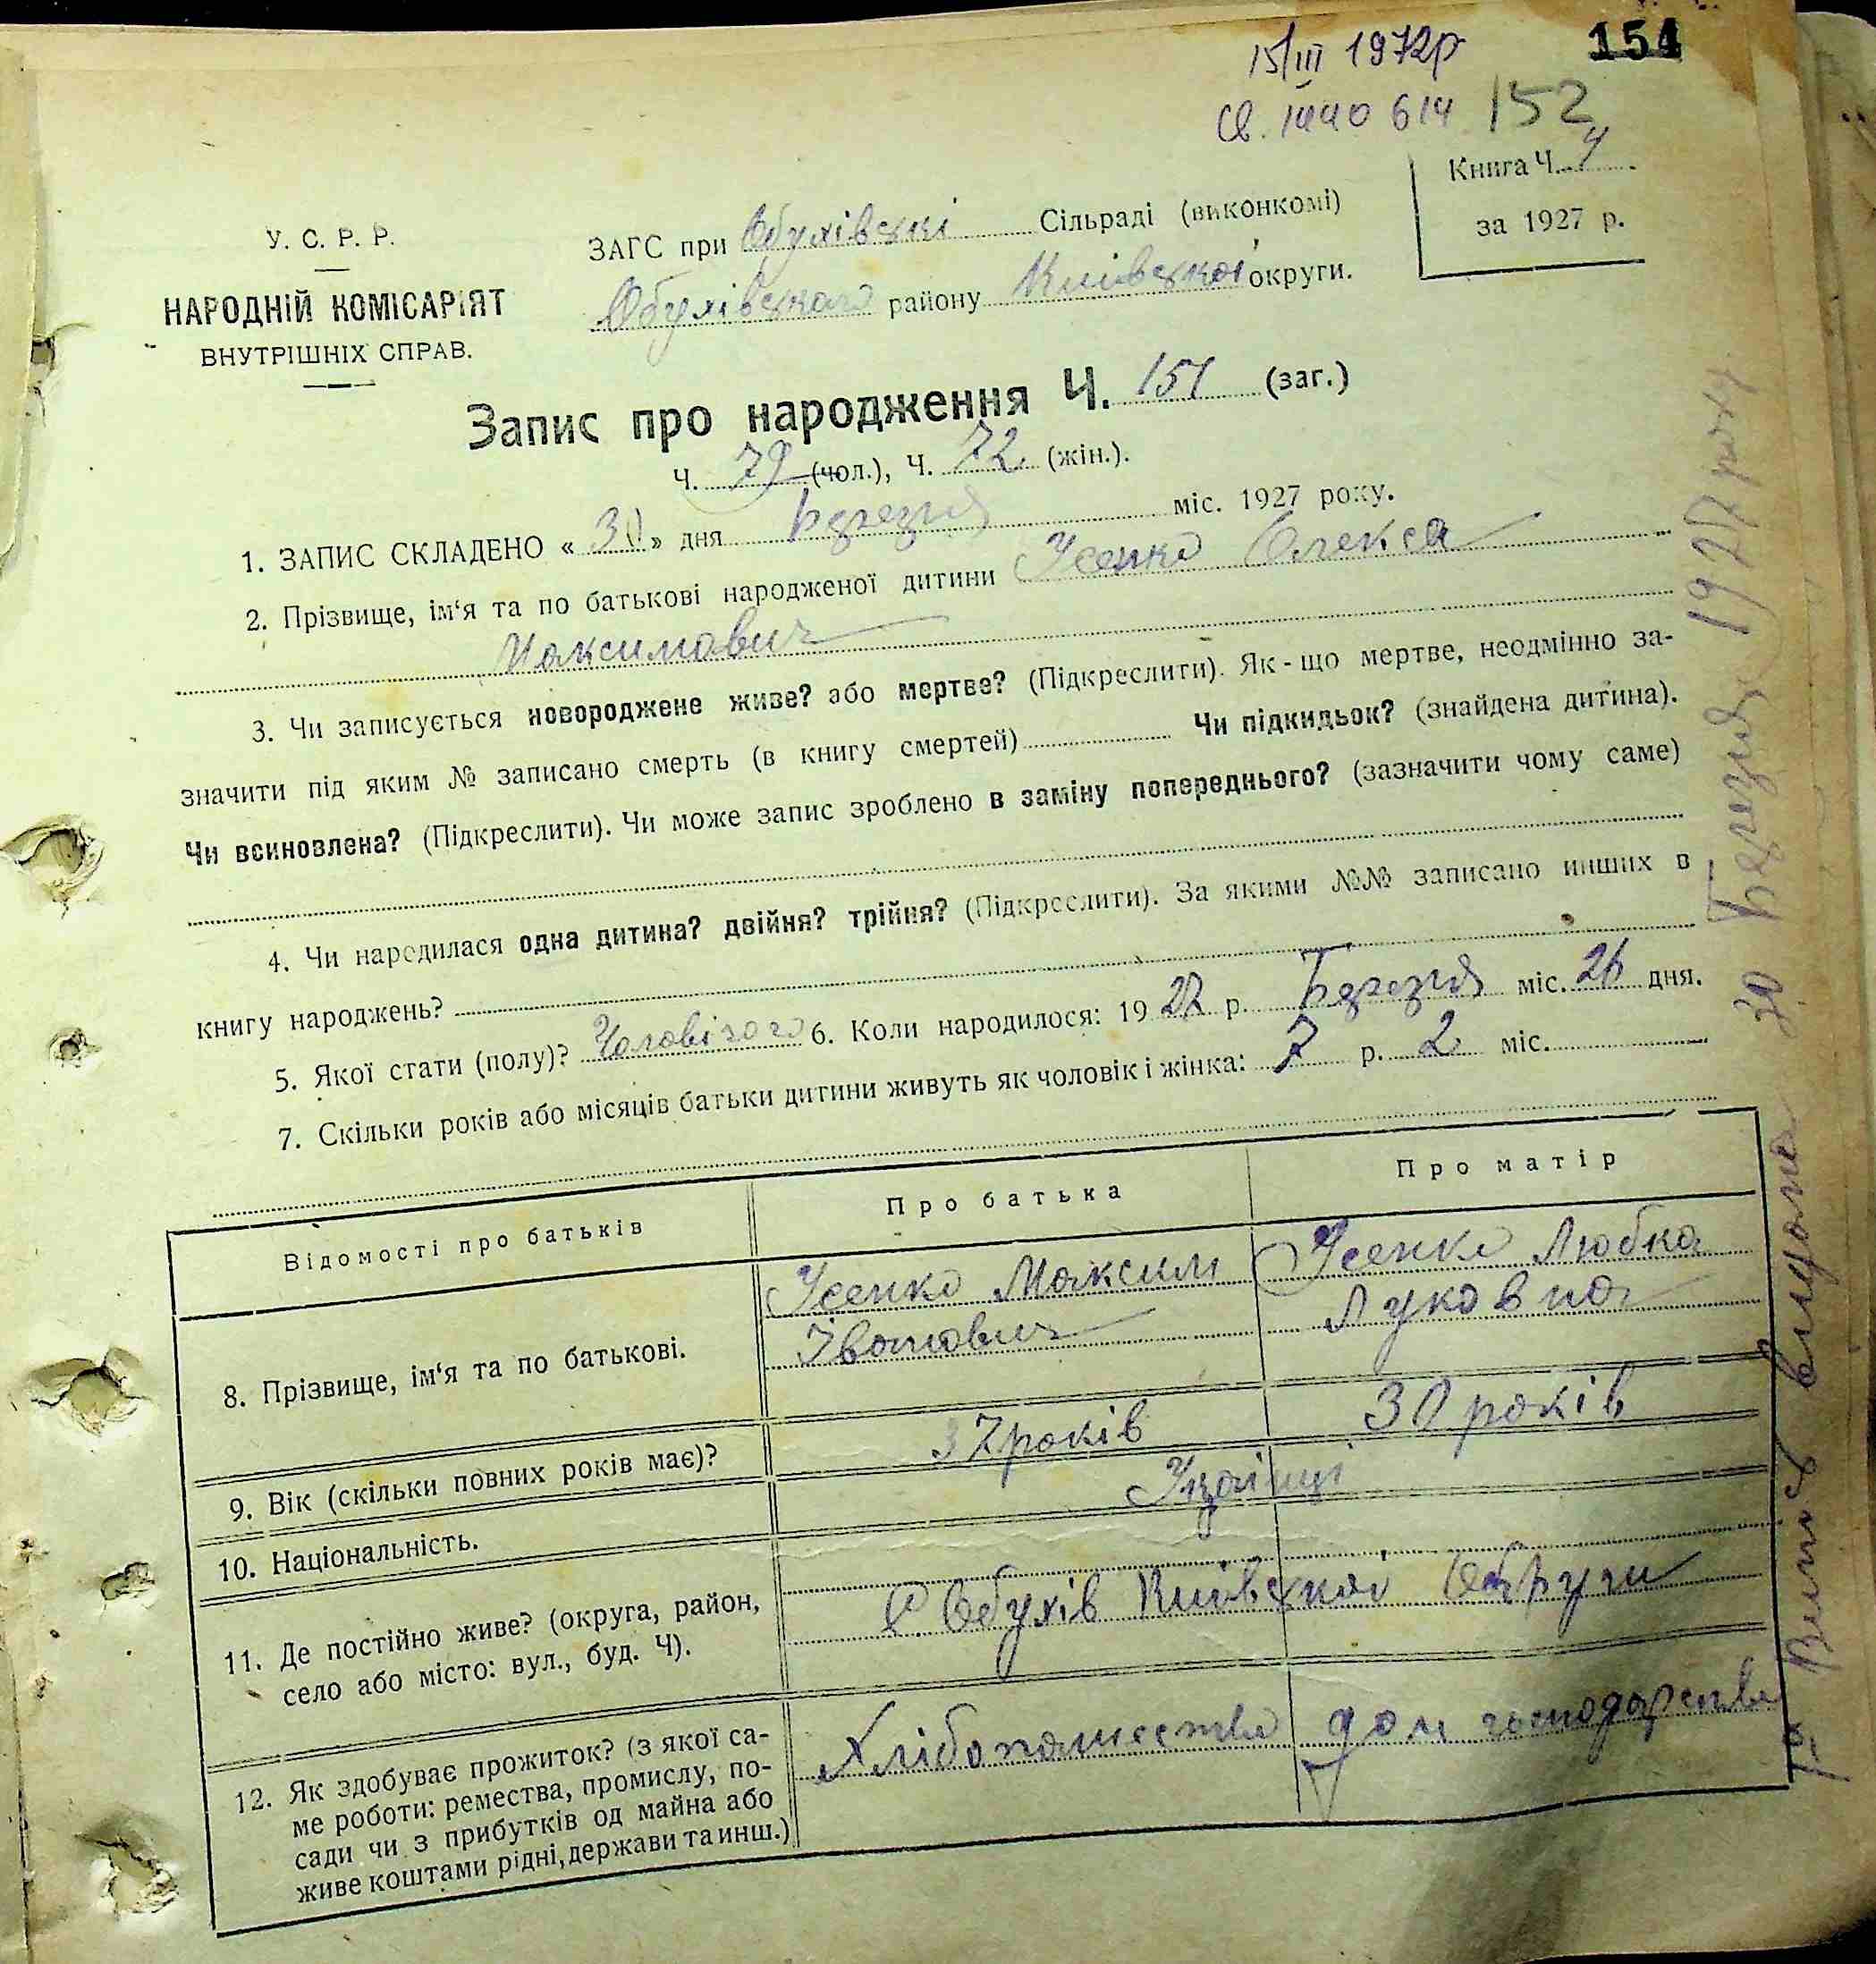 15/III 1972р
154
Св. ІИАО 614
152
Книга Ч. 4
за 1927 р.
У. С. Р. Р.
НАРОДНІЙ КОМІСАРІЯТ
ВНУТРІШНІХ СПРАВ.
ЗАГС при Обухівскі Сільраді (виконкомі)
Обухівского району Київської округи.
Запис про народження Ч. 151 (заг.)
Ч. 79 (чол.), Ч. 72 (жін.).
1. ЗАПИС СКЛАДЕНО « 30 » дня Березня міс. 1927 року.
2. Прізвище, ім‘я та по батькові народженої дитини Усенко Олекса
Максимович
3. Чи записується новороджене живе? або мертве? (Підкреслити). Як-що мертве, неодмінно за-
значити під яким № записано смерть (в книгу смертей) Чи підкидьок? (знайдена дитина).
Чи всиновлена? (Підкреслити). Чи може запис зроблено в заміну попереднього? (зазначити чому саме)
4. Чи народилася одна дитина? двійня? трійня? (Підкреслити). За якими №№ записано инших в
книгу народжень?
5. Якої стати (полу)? Чоловічого 6. Коли народилося: 1927 р. Березня міс. 26 дня.
7. Скільки років або місяців батьки дитини живуть як чоловік і жінка: 7 р. 2 міс.
Відомості про батьків
Про батька
Про матір
8. Прізвище, ім‘я та по батькові.
Усенко Максим
Іванович
Усенко Любка
Луковна
9. Вік (скільки повних років має)?
37 років
30 років
10. Національність.
Українці
11. Де постійно живе? (округа, район,
село або місто: вул., буд. Ч).
С. Обухів Київської Округи
12. Як здобуває прожиток? (з якої са-
ме роботи: ремества, промислу, по-
сади чи з прибутків од майна або
живе коштами рідні, держави та инш.)
Хлібопашество
дом господарство
Випис видано 30 Березня 1927 року